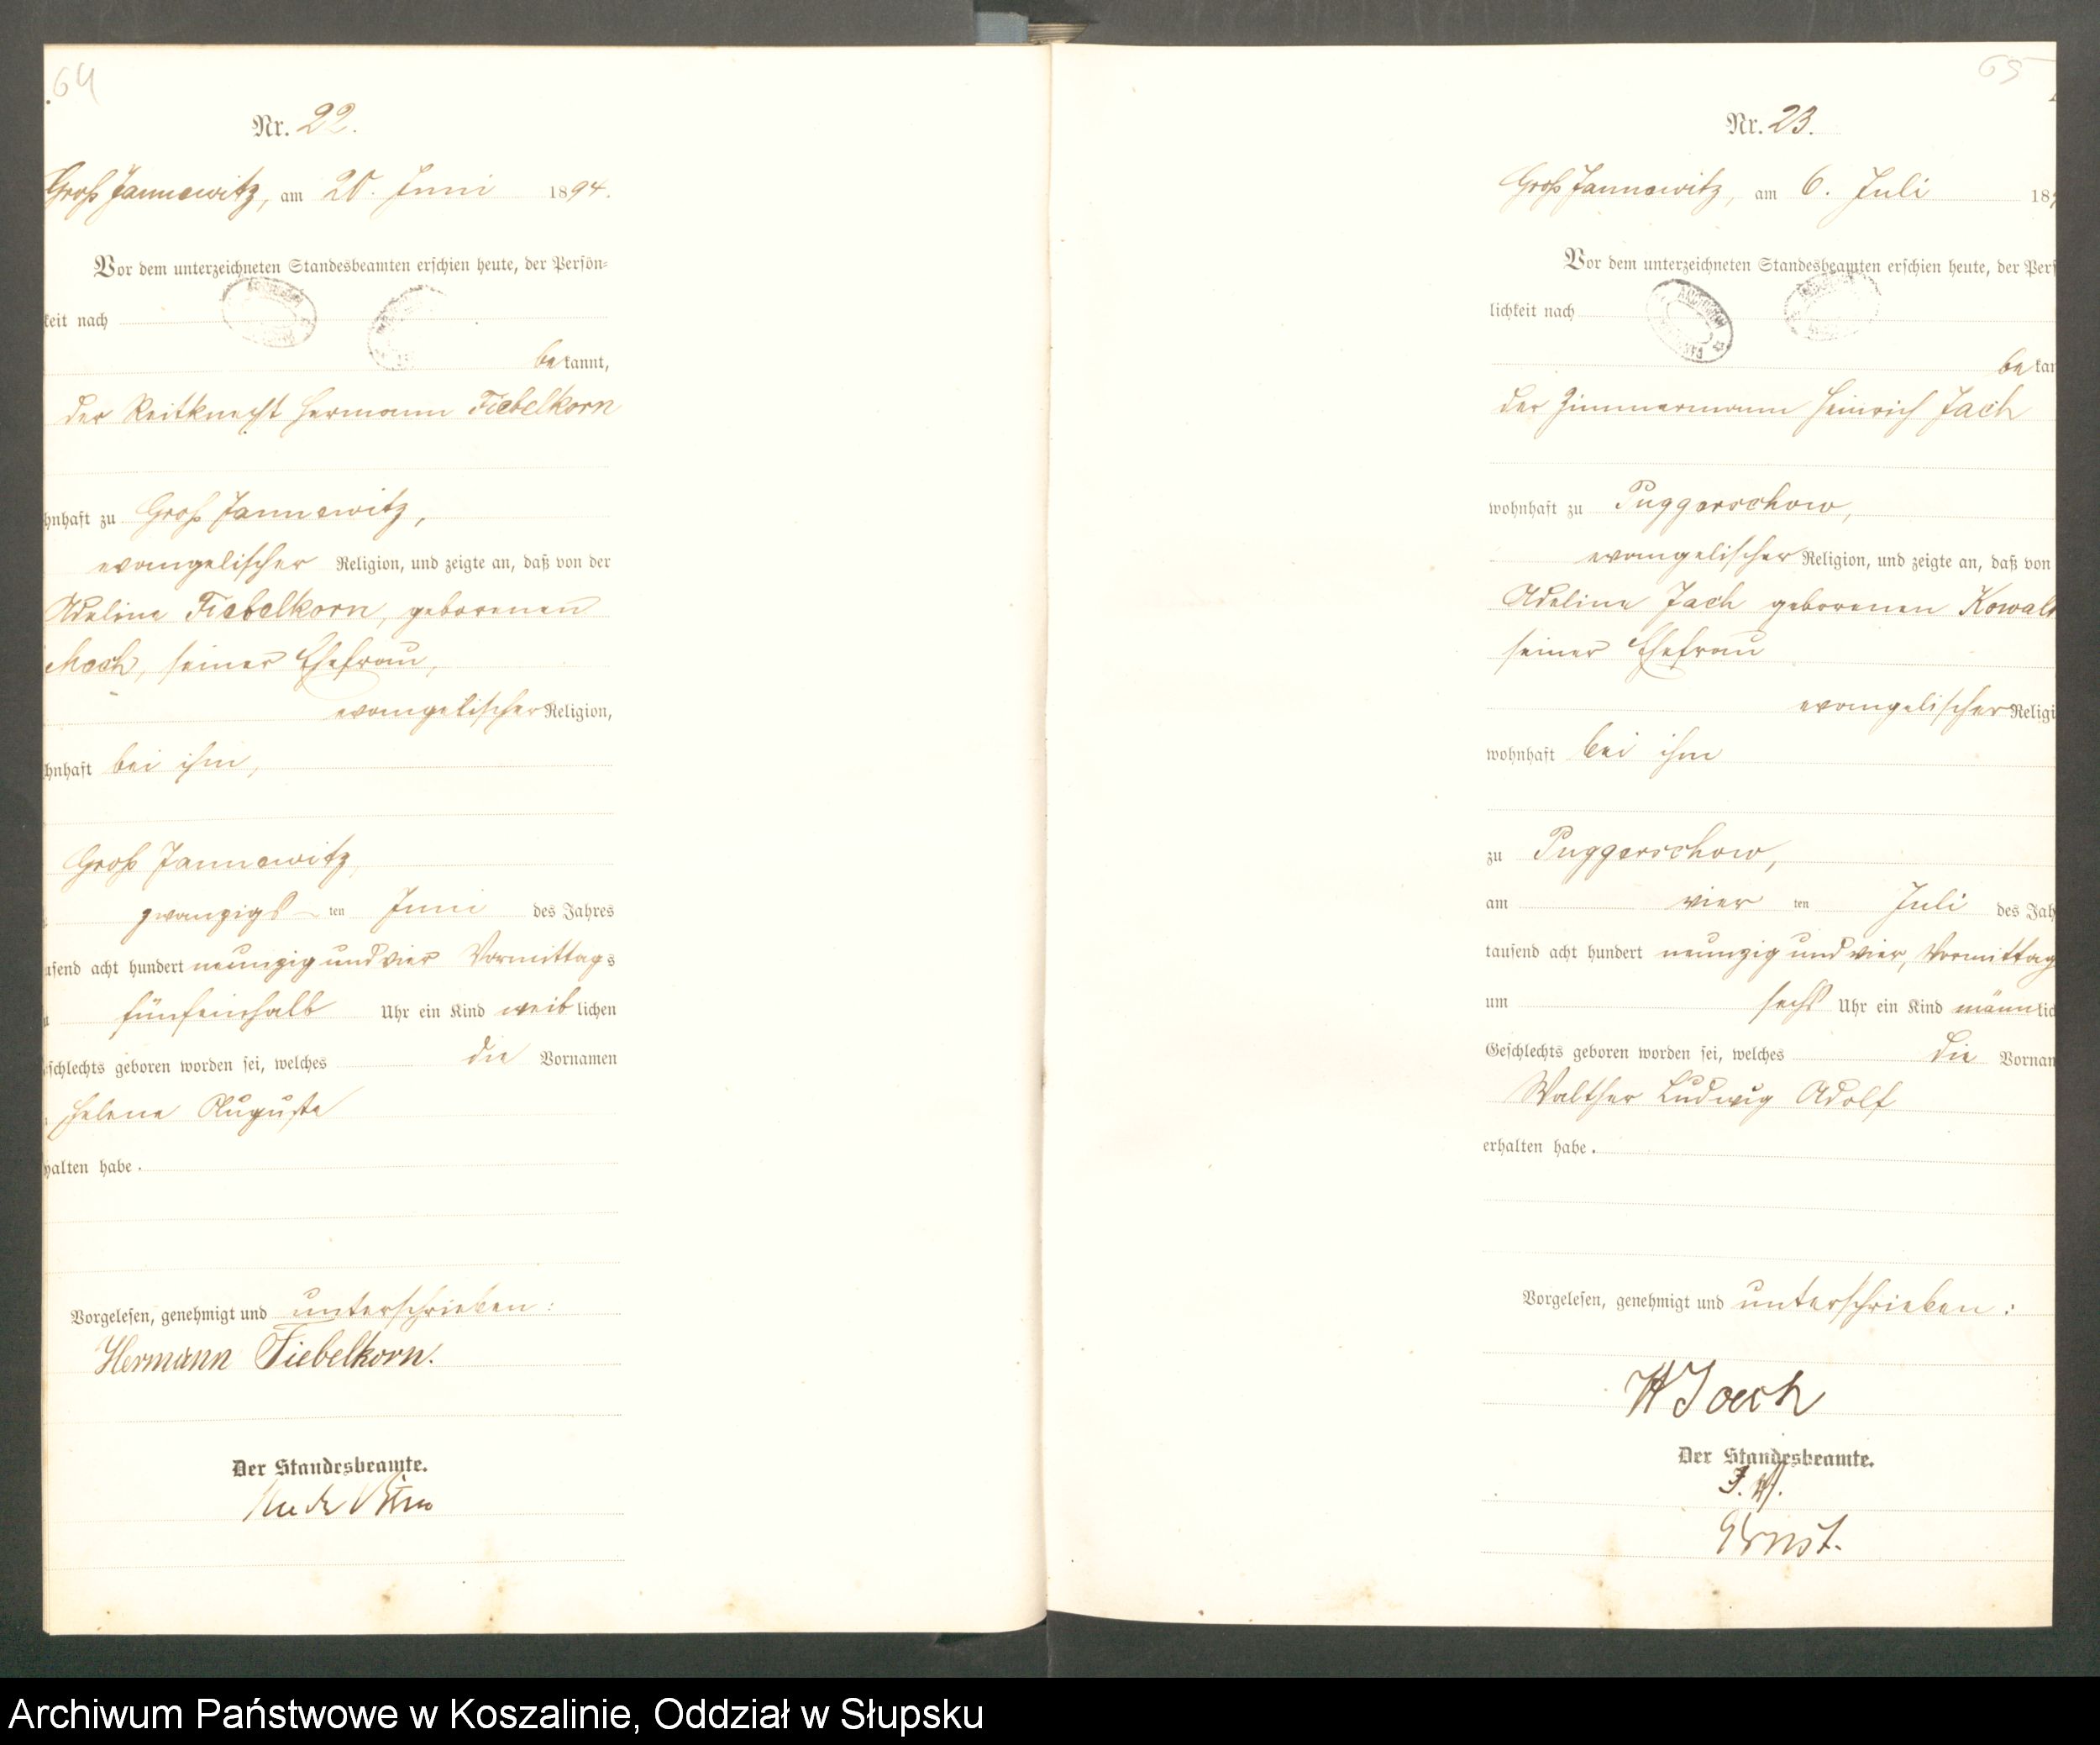 64
Nr. 22.
Groß Jannewitz, am 20. Juni 1894.
Vor dem unterzeichneten Standesbeamten erschien heute, der Persön-
keit nach
bekannt,
der Reitknecht Hermann Fiebelkorn
hnhaft zu Groß Jannewitz,
evangelischer Religion, und zeigte an, daß von der
Adeline Fiebelkorn, geborenen
Mach, seiner Ehefrau,
evangelischer Religion,
hnhaft bei ihm,
Groß Jannewitz,
zwanzigsten Juni des Jahres
usend acht hundert neunzig und vier Vormittags
fünfeinhalb Uhr ein Kind weiblichen
schlechts geboren worden sei, welches die Vornamen
Helene Auguste
halten habe.
Vorgelesen, genehmigt und unterschrieben:
Hermann Fiebelkorn.
Der Standesbeamte.
65
Nr. 23.
Groß Jannewitz, am 6. Juli 189
Vor dem unterzeichneten Standesbeamten erschien heute, der Pers
lichkeit nach
bekan
der Zimmermann Heinrich Jach
wohnhaft zu Puggerschow,
evangelischer Religion, und zeigte an, daß von
Adeline Jach geborenen Kowals
seiner Ehefrau
evangelischer Religi
wohnhaft bei ihm
zu Puggerschow,
am vierten Juli des Jah
tausend acht hundert neunzig und vier, Vormittag
um sechs Uhr ein Kind männlic
Geschlechts geboren worden sei, welches die Vornam
Walther Ludwig Adolf
erhalten habe.
Vorgelesen, genehmigt und unterschrieben:
H Jach
Der Standesbeamte.
J. V.
Ernst.
Archiwum Państwowe w Koszalinie, Oddział w Słupsku